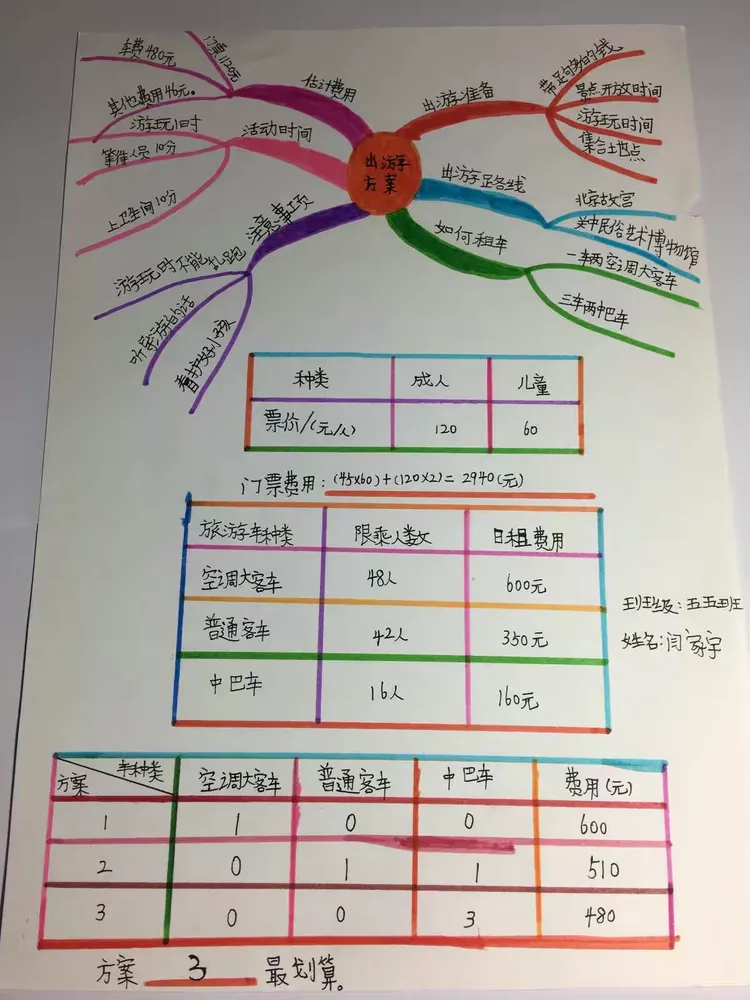 出游方案
估计费用
门票120元
车费480元
其他费用46元。
活动时间
游玩1时
等待人员10分
上卫生间10分
注意事项
游玩时不能乱跑
听导游的话
看护好小孩
出游准备
带足够的钱
景点开放时间
游玩时间
集合地点
出游路线
北京故宫
关中民俗艺术博物馆
如何租车
一车两空调大客车
三车两中巴车
种类 成人 儿童
票价/(元/人) 120 60
门票费用:(45×60)+(120×2)=2940(元)
旅游车种类 限乘人数 日租费用
空调大客车 48人 600元
普通客车 42人 350元
中巴车 16人 160元
班级:五五班
姓名:闫家宇
方案 车种类 空调大客车 普通客车 中巴车 费用(元)
1 1 0 0 600
2 0 1 1 510
3 0 0 3 480
方案 3 最划算。